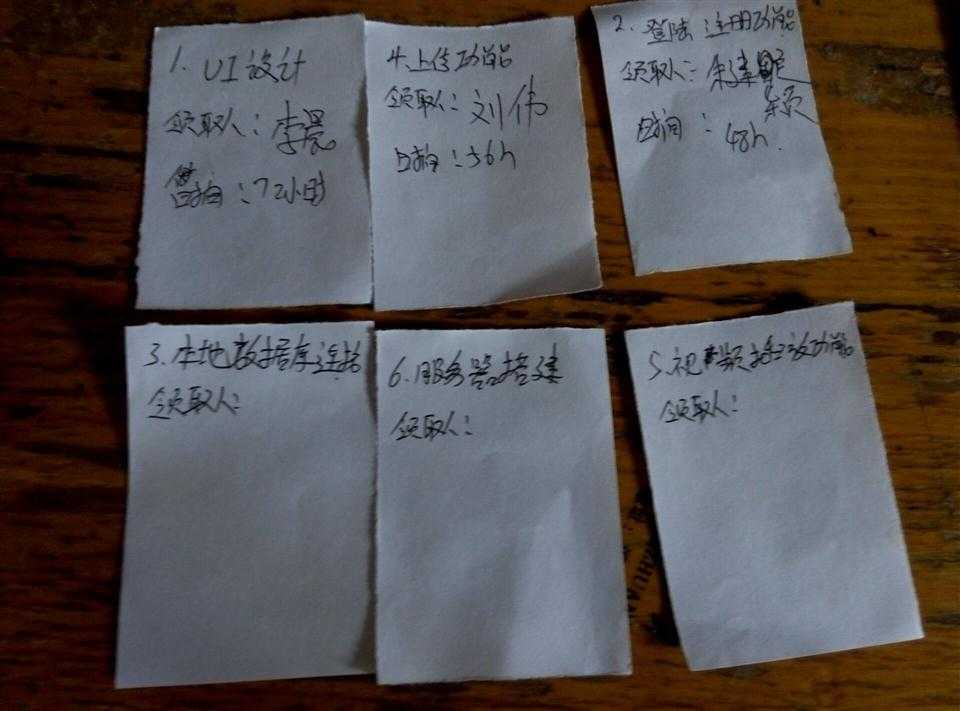 1. UI设计
领取人：李晨
时间：72小时
4.上传功能
领取人：刘伟
时间：36h
2.登陆注册功能
领取人：
时间：48h.
3.本地数据库连接
领取人：
6.服务器搭建
领取人：
5.视频播放功能
领取人：